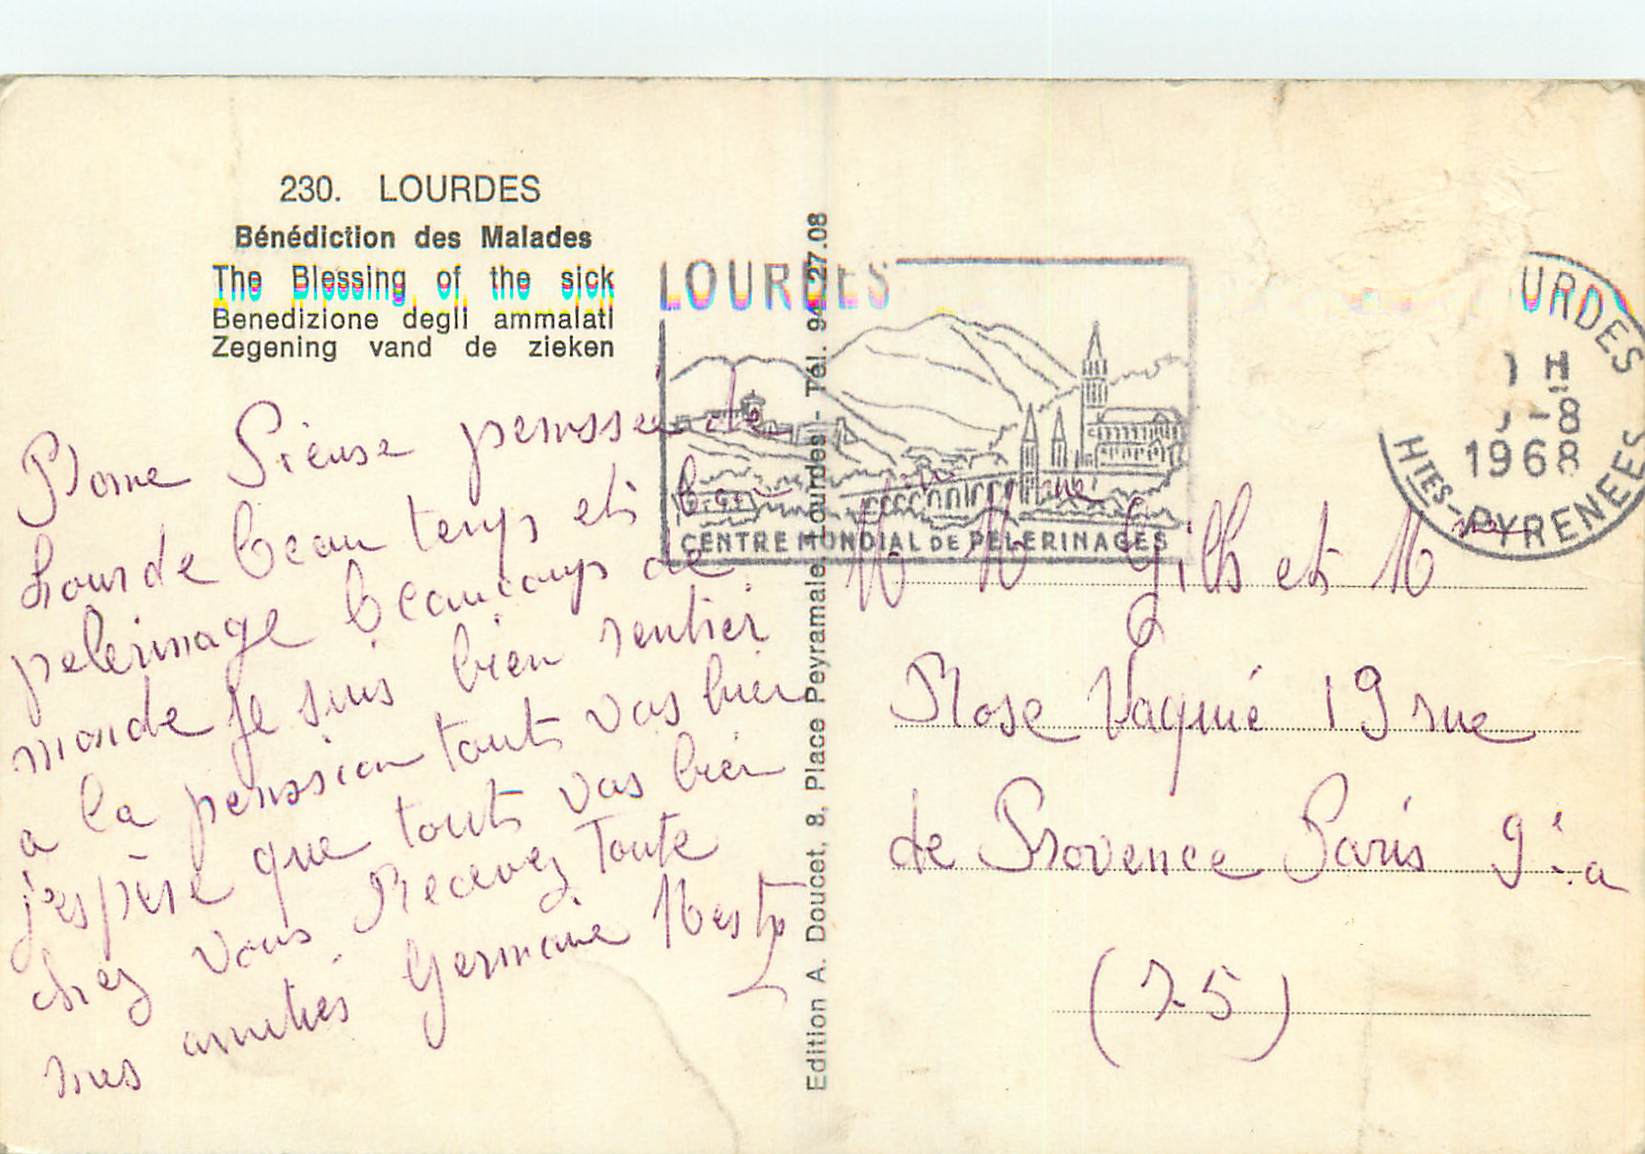 230. LOURDES
Bénédiction des Malades
The Blessing of the sick
Benedizione degli ammalati
Zegening vand de zieken
LOURDES
CENTRE MONDIAL DE PELERINAGES
URDES
H
-8
1968
HTES-PYRENEES
de
Lourde beau temps et
pelerinage beaucoups de
monde je suis bien rentier
a la penssion touts vas bien
j'espère que touts vas bien
chez vous Recevez Toute
mes amitiés Germaine
Edition A. Doucet, 8, Place Peyramale, Lourdes - Tél. 94.27.08
et Mme
Rose Vaquié 19 rue
de Provence Paris 9è.a
(75)